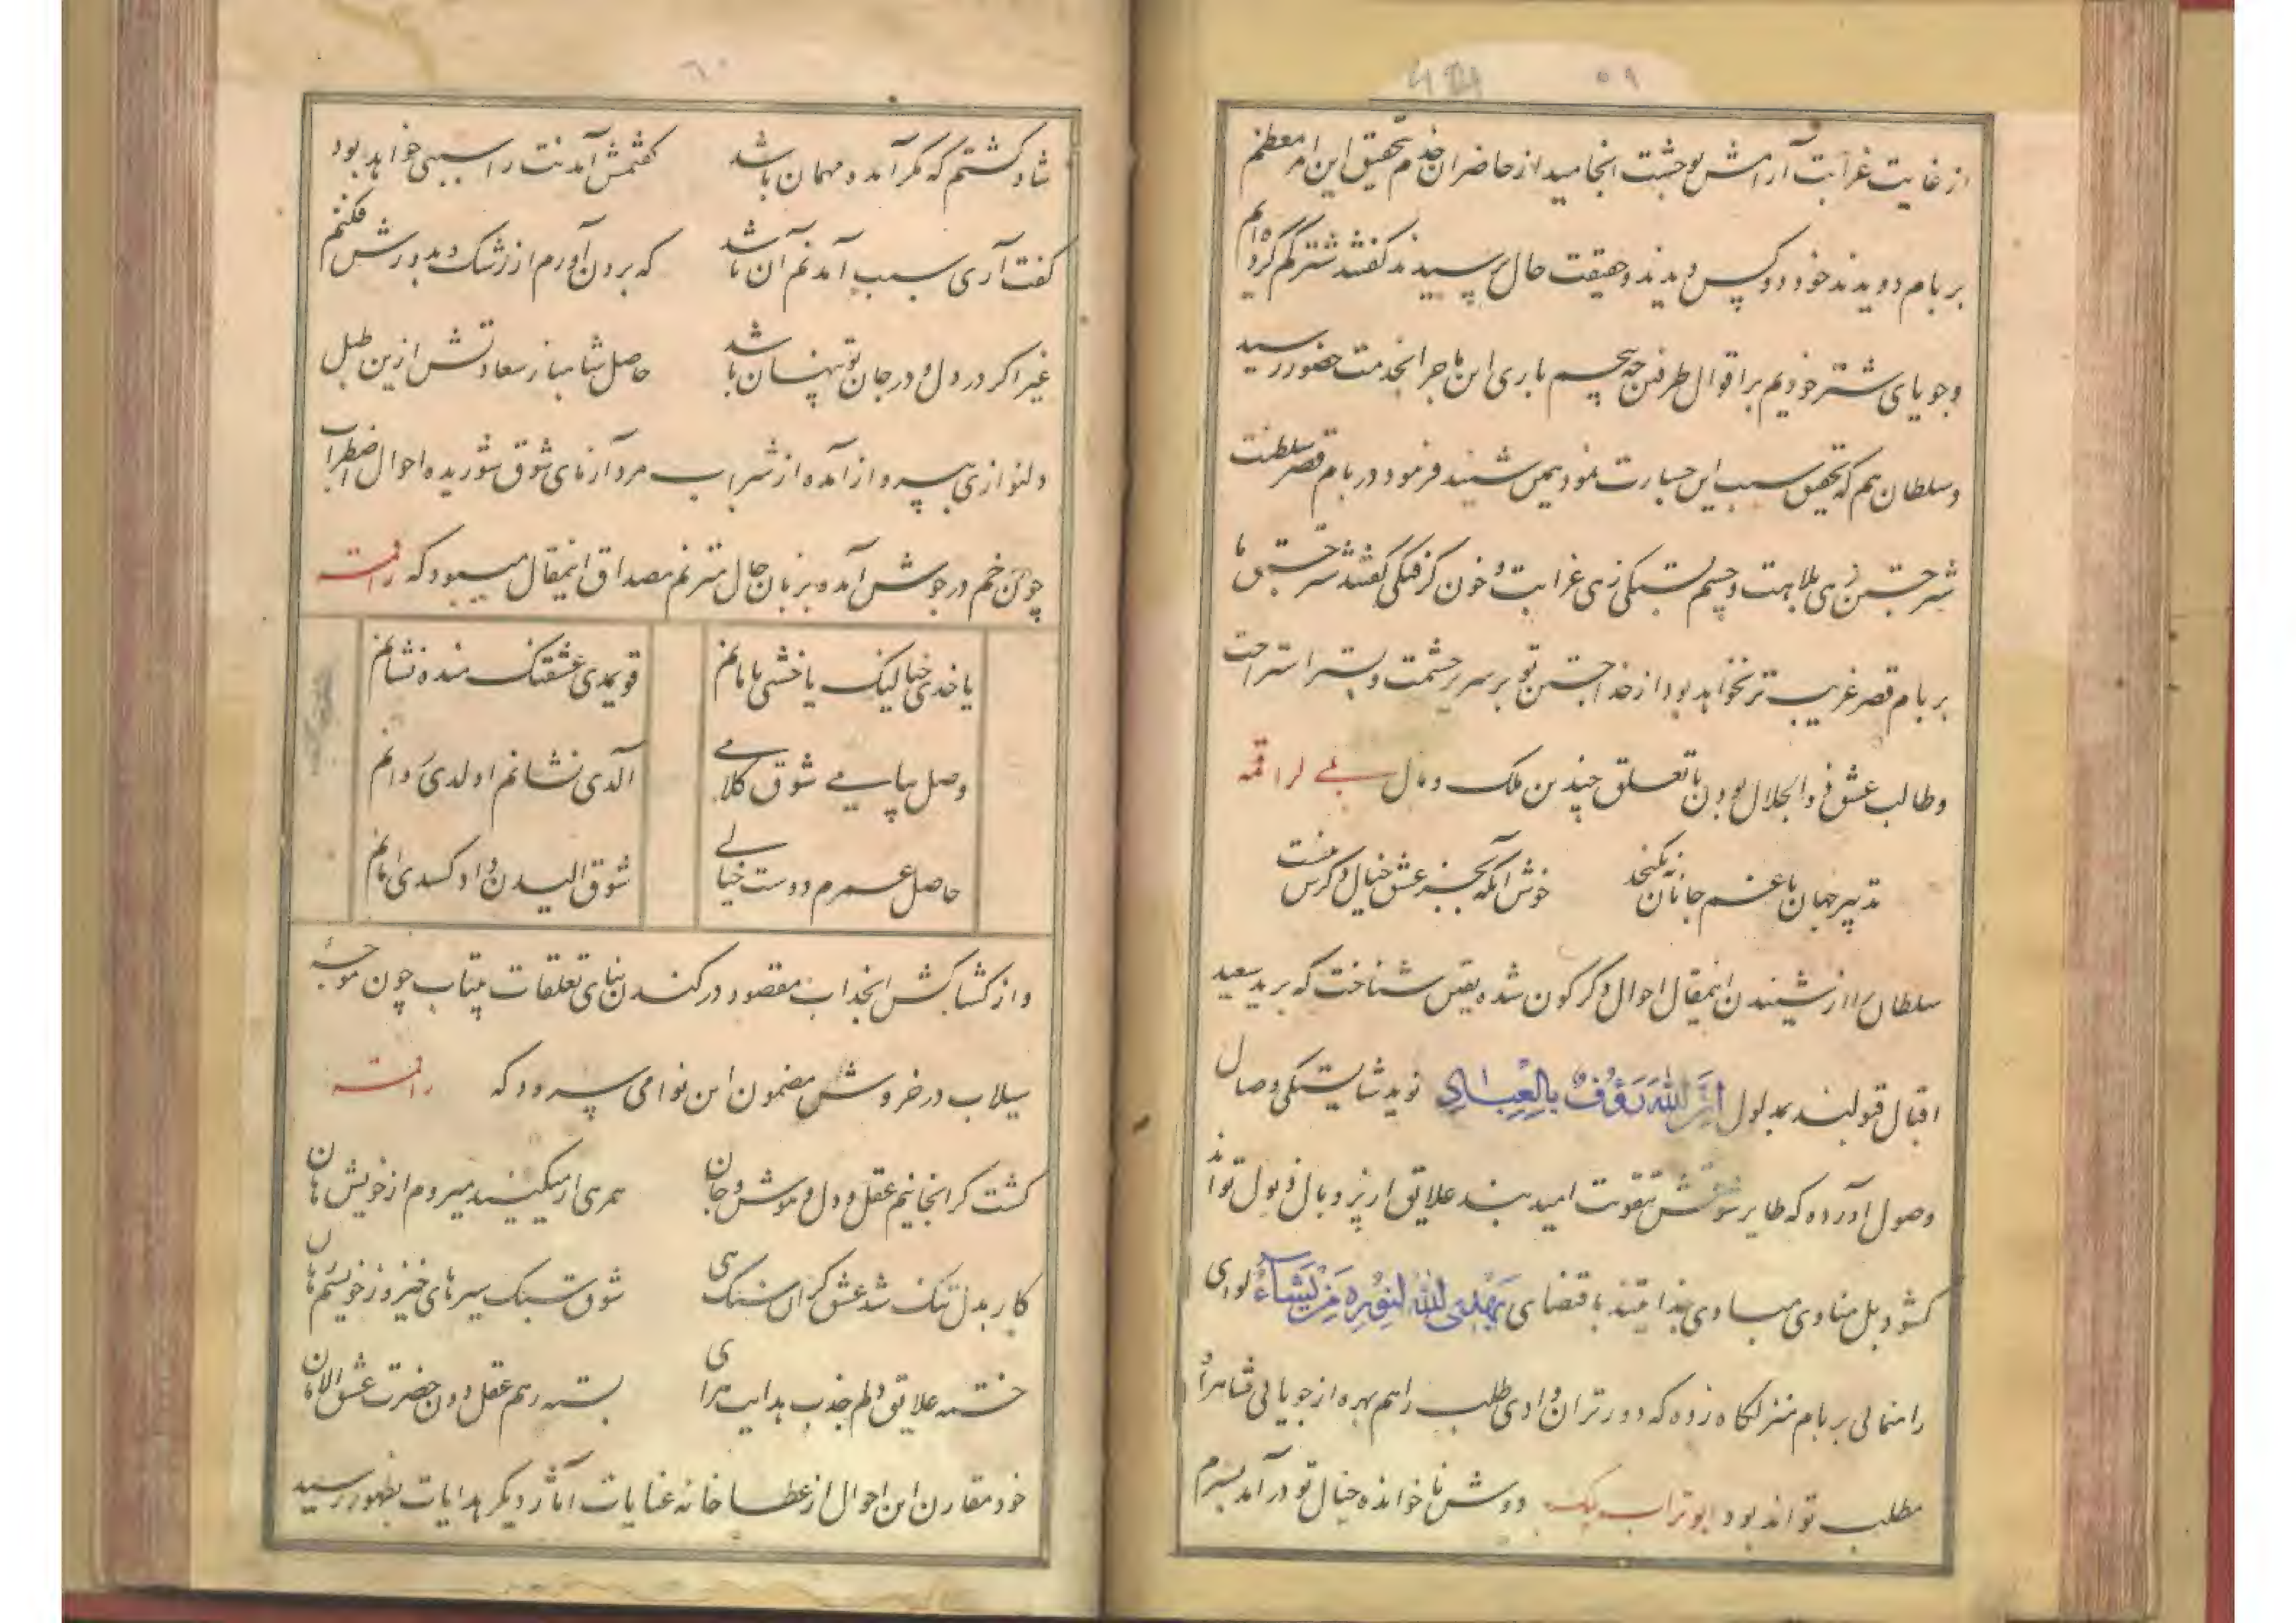 ۵۹
از غایت غرابت آرامش بوحشت انجامید از حاضران خدم تحقیق این امر معظم
بر بام دویدند خود دو کس دیدند و حقیقت حال پرسیدند گفتند شتر گم کرده ایم
و جویای شتر خودیم بر اقوال طرفین باری این ماجرا بخدمت حضور رسید
و سلطان هم که تحقیق سبب این جسارت نمود همین شنید فرمود در بام قصر سلطنت
شتر جستن زهی بلاهت و چشم بستگی زهی غرابت و خون گرفتگی گفتند شتر جستن ما
بر بام قصر غریب تر نخواهد بود از خدا جستن تو بر سریر حشمت و بستر استراحت
و طالب عشق ذو الجلال بودن با تعلق چندین ملک و مال بلے لراقمه
تدبیر جهان با غم جانان نه نکنجد
خوش آنکه بجز عشق خیال دگرش نیست
سلطان را از شنیدن اینمقال احوال دگرگون شده یقین شناخت که برید سعید
اقبال قبولند بمدلول اِنَّ اللهَ رَؤُفٌ بِالْعِبَادِ نوید شایستگی وصال
وصول آورده که طایر شوقش بتقویت امید بند علایق از پر و بال قبول تواند
کشود بل منادی مبادی باقتضای یَهْدِی اللهُ لِنُورِهِ مَنْ یَشَاءُ لوای
راهنمائی بر بام منزلگاه زده که دورتران وادی طلب را هم بهره از جویائی شاهراه
مطلب تواند بود ابو تراب بیک دوش ناخوانده خیال تو درآمد بسرم
۶۰
شاد گشتم که مگر آمد و مهمان باشد
گفتمش آمدنت را سببی خواهد بود
گفت آری سبب آمدنم آن باشد
که برون آورم از رشک و بدورش فکنم
غیر اگر در دل و در جان تو پنهان باشد
حاصل شاهباز سعادتش ازین طبل
دلنوازی بپرواز آمده از شراب مردآزمای شوق شوریده احوال اضطراب
چون خم در جوش آمده بزبان حال مترنم مصداق اینمقال میبود که راقمه
یاخدی خیالینک یاخشی یامانم
قویمدی عشقنک منده نشانم
وصل پیامے شوق کلامے
آلدی نشانم اولدی روانم
حاصل عمرم دوست خیالے
شوق الیدن داد کسدی امانم
و از کشاکش انجذاب مقصود در کندن بنای تعلقات بیتاب چون موجهٔ
سیلاب در خروش مضمون این نوا می سرود که راقمه
گشت گر انجانیم عقل و دل و هوش و جان
همرهی ار میکنید میروم از خویش هان
کار بدل تنگ شد عشق گران سنگ هی
شوق سبک سیرهای خیز و ز خویشم هان
خسته علایق دلم جذب هدایت هرای
بسته رهم عقل دون حضرت عشق الامان
خود مقارن این احوال از عطا خانه عنایات آثار دیگر هدایات بظهور رسید